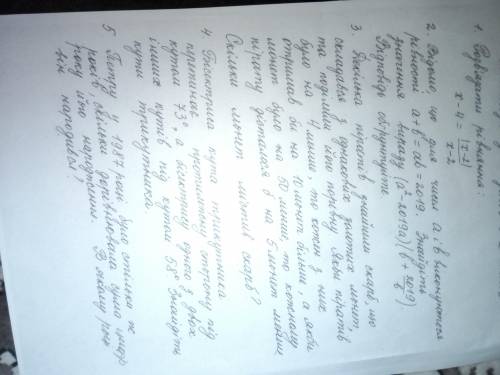 1. Розв'язати рівняння:
x-4 = |x-2| / x-2
2. Відомо, що для чисел a і b виконуються
рівності a-b = ab = 2019. Знайдіть
значення виразу (a²-2019a)(b+2019/b).
Відповідь обґрунтуйте.
3. Декілька піратів знайшли скарб, що
складався з однакових золотих монет,
та поділили його порівну. Якби піратів
було на 4 менше, то кожен з них
отримав би на 10 монет більше, а якби
монет було на 50 менше, то кожному
пірату дісталося б на 5 монет менше.
Скільки монет містив скарб?
4. Бісектриса кута трикутника
перетинає протилежну сторону під
кутом 73°, а бісектрису одного з двох
інших кутів під кутом 58°. Знайдіть
кути трикутника.
5. Петру у 1987 році було стільки ж
років, скільки дорівнювала сума цифр
року його народження. В якому році
він народився?